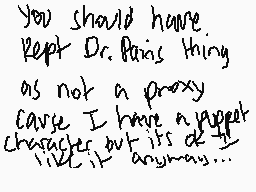 You should have
Kept Dr. Pains thing
as not a proxy
cause I have a puppet
character, but its ok I
like it anyways...